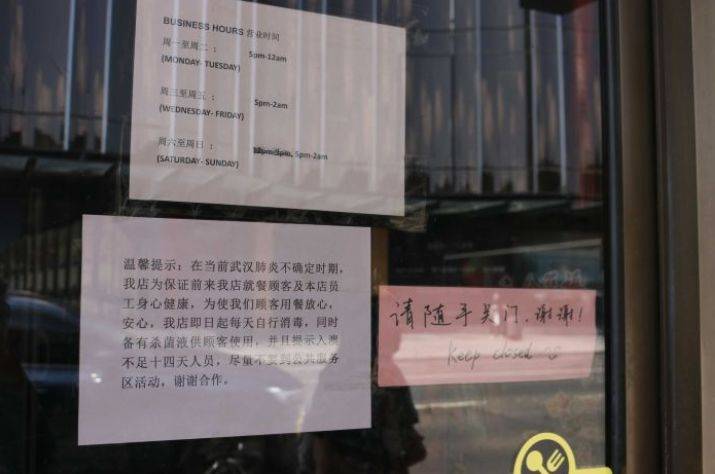 BUSINESS HOURS 营业时间
周一至周二：
5pm-12am
(MONDAY- TUESDAY)
周三至周五：
5pm-2am
(WEDNESDAY- FRIDAY)
周六至周日：
5pm-2am
(SATURDAY- SUNDAY)
温馨提示：在当前武汉肺炎不确定时期，
我店为保证前来我店就餐顾客及本店员
工身心健康，为使我们顾客用餐放心，
安心，我店即日起每天自行消毒，同时
备有杀菌液供顾客使用，并且提示入澳
不足十四天人员，尽量不要到公共服务
区活动，谢谢合作。
请随手关门，谢谢！
Keep closed